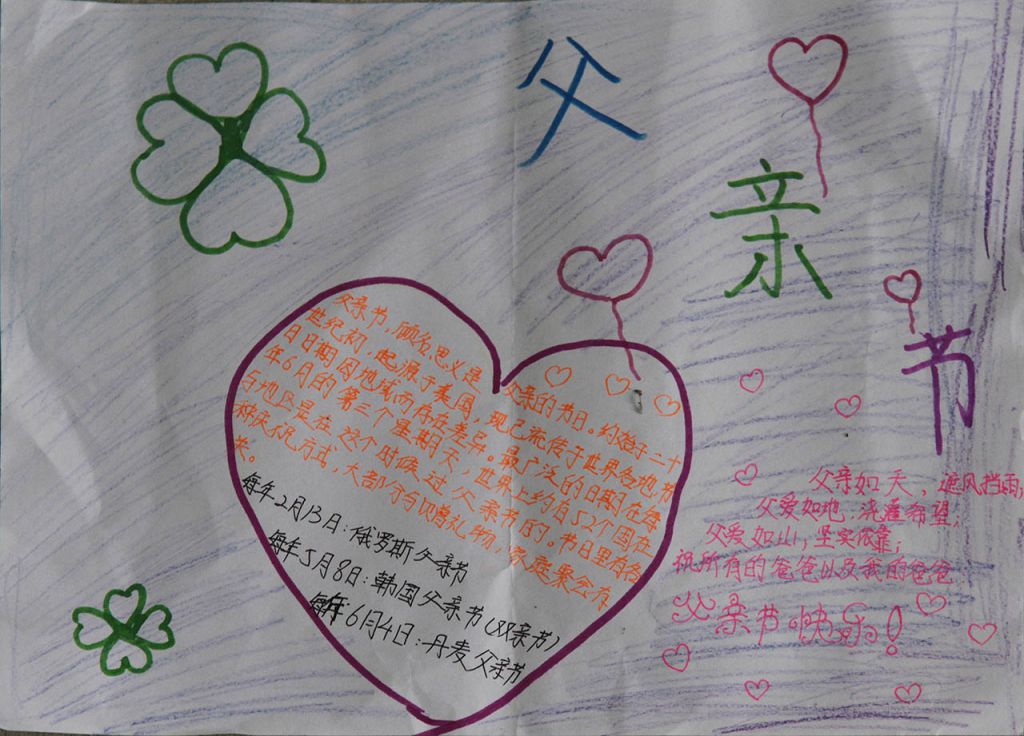 父
亲
节
父亲节，顾名思义是父亲的节日。约始于二十
世纪初，起源于美国，现已流传于世界各地，节
日日期因地域而存在差异。最广泛的日期在每
年6月的第三个星期天，世界上约有52个国在
与地区是在这个时候过父亲节的。节日里有各
种庆祝方式，大部分与赠礼物，家庭聚会有
关。
每年2月13日：俄罗斯父亲节
每年5月8日：韩国父亲节（双亲节）
每年6月4日：丹麦父亲节
父亲如天，遮风挡雨；
父爱如地，浇灌希望；
父爱如山，坚实依靠；
祝所有的爸爸以及我的爸爸
父亲节快乐！